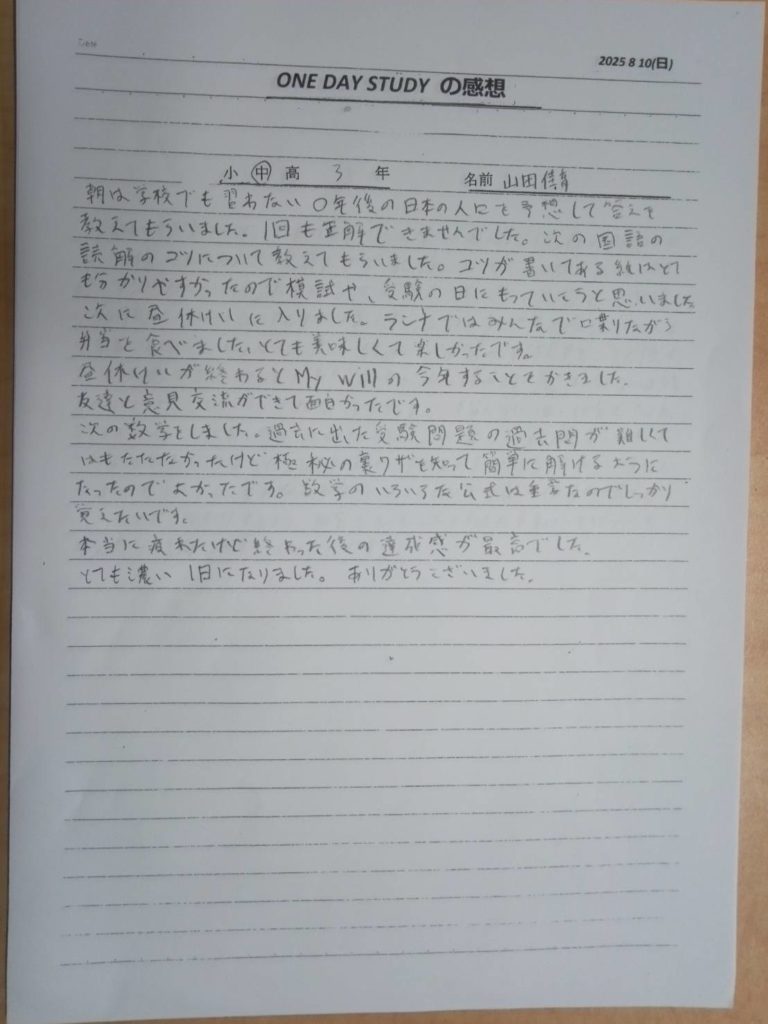 2025 8 10(日)
ONE DAY STUDY の感想
小 中 高 3 年 名前 山田
朝は学校でも習わない〇年後の日本の人口を予想して答えを
教えてもらいました。1回も正解できませんでした。次の国語の
読解のコツについて教えてもらいました。コツが書いてある紙はとて
も分かりやすかったので模試や、受験の日にもっていこうと思いました
次に昼休けいに入りました。ランチではみんなで喋りながら
弁当を食べました。とても美味しくて楽しかったです。
昼休けいが終わるとMy Willの今年することをかきました。
友達と意見交流ができて面白かったです。
次の数学をしました。過去に出た受験問題の過去問が難しくて
はもたたなかったけど極秘の裏ワザを知って簡単に解けるように
なったのでよかったです。数学のいろいろな公式は重要なのでしっかり
覚えたいです。
本当に疲れたけど終わった後の達成感が最高でした。
とても濃い1日になりました。ありがとうございました。